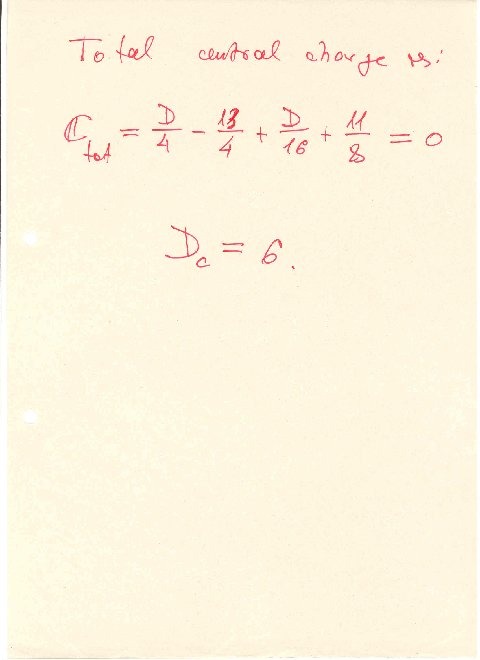 Total central charge is:
ℂ_tot = D/4 - 13/4 + D/16 + 11/8 = 0
D_c = 6.